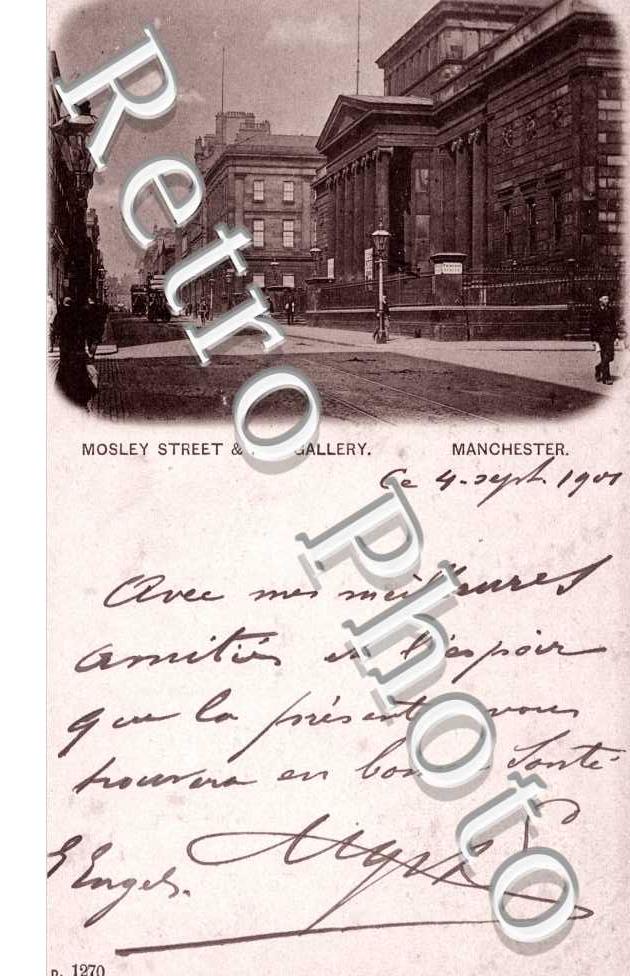 MOSLEY STREET & GALLERY. MANCHESTER.
Ce 4. sept. 1901
Avec mes meilleures
amitiés et l'espoir
que la présente vous
trouvera en bonne Santé
Engels.
1270
Retro Photo